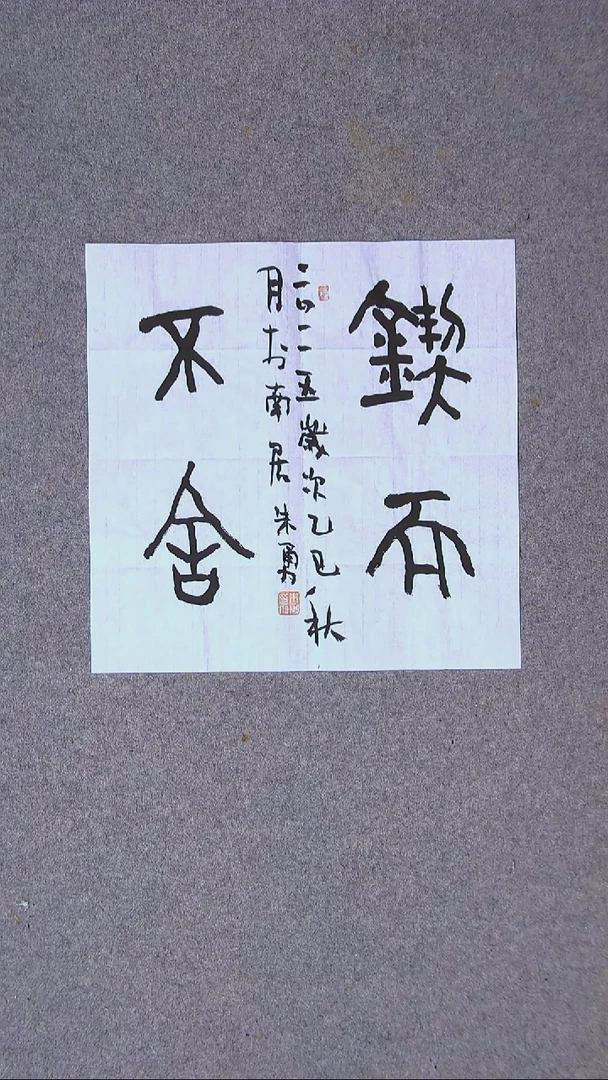 鍥而
二〇二五歲次乙巳秋
月於南居朱勇
不舍